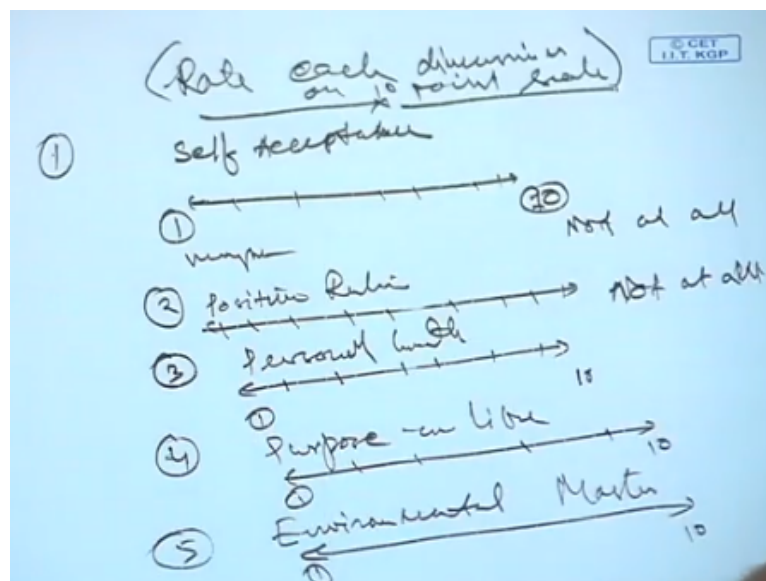 © CET
I.I.T. KGP
(Rate each dimension
on 10 point scale)
① Self Acceptance
① ⑩ Not at all
② Positive Not at all
③ Personal Growth
① 10
④ Purpose in
① 10
⑤ Environmental Master
① 10